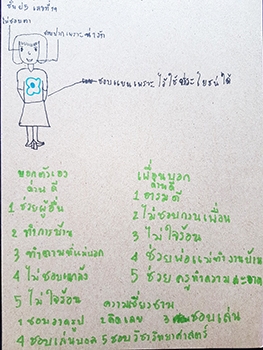 ชั้นป5 เลขที่14
ไม่ชอบตา
ชอบปากเพราะน่ารัก
ชอบแขนเพราะใช้ประโยชน์ได้
บอกตัวเอง
ด้านดี
1 ช่วยผู้อื่น
2 ทำการบ้าน
3 ทำตามที่แม่บอก
4 ไม่ชอบ
5 ไม่ใจร้อน
เพื่อนบอก
ด้านดี
1 อารมดี
2 ไม่ชอบกวนเพื่อน
3 ไม่ใจร้อน
4 ช่วยพ่อแม่ทำงานบ้าน
5 ช่วยครูทำความสะอาด
ความเชี่ยวชาญ
1 ชอบวาดรูป 2 คิดเลข 3 ชอบเล่น
4 ชอบเล่นบอล 5 ชอบวิชาวิทยาศาสตร์